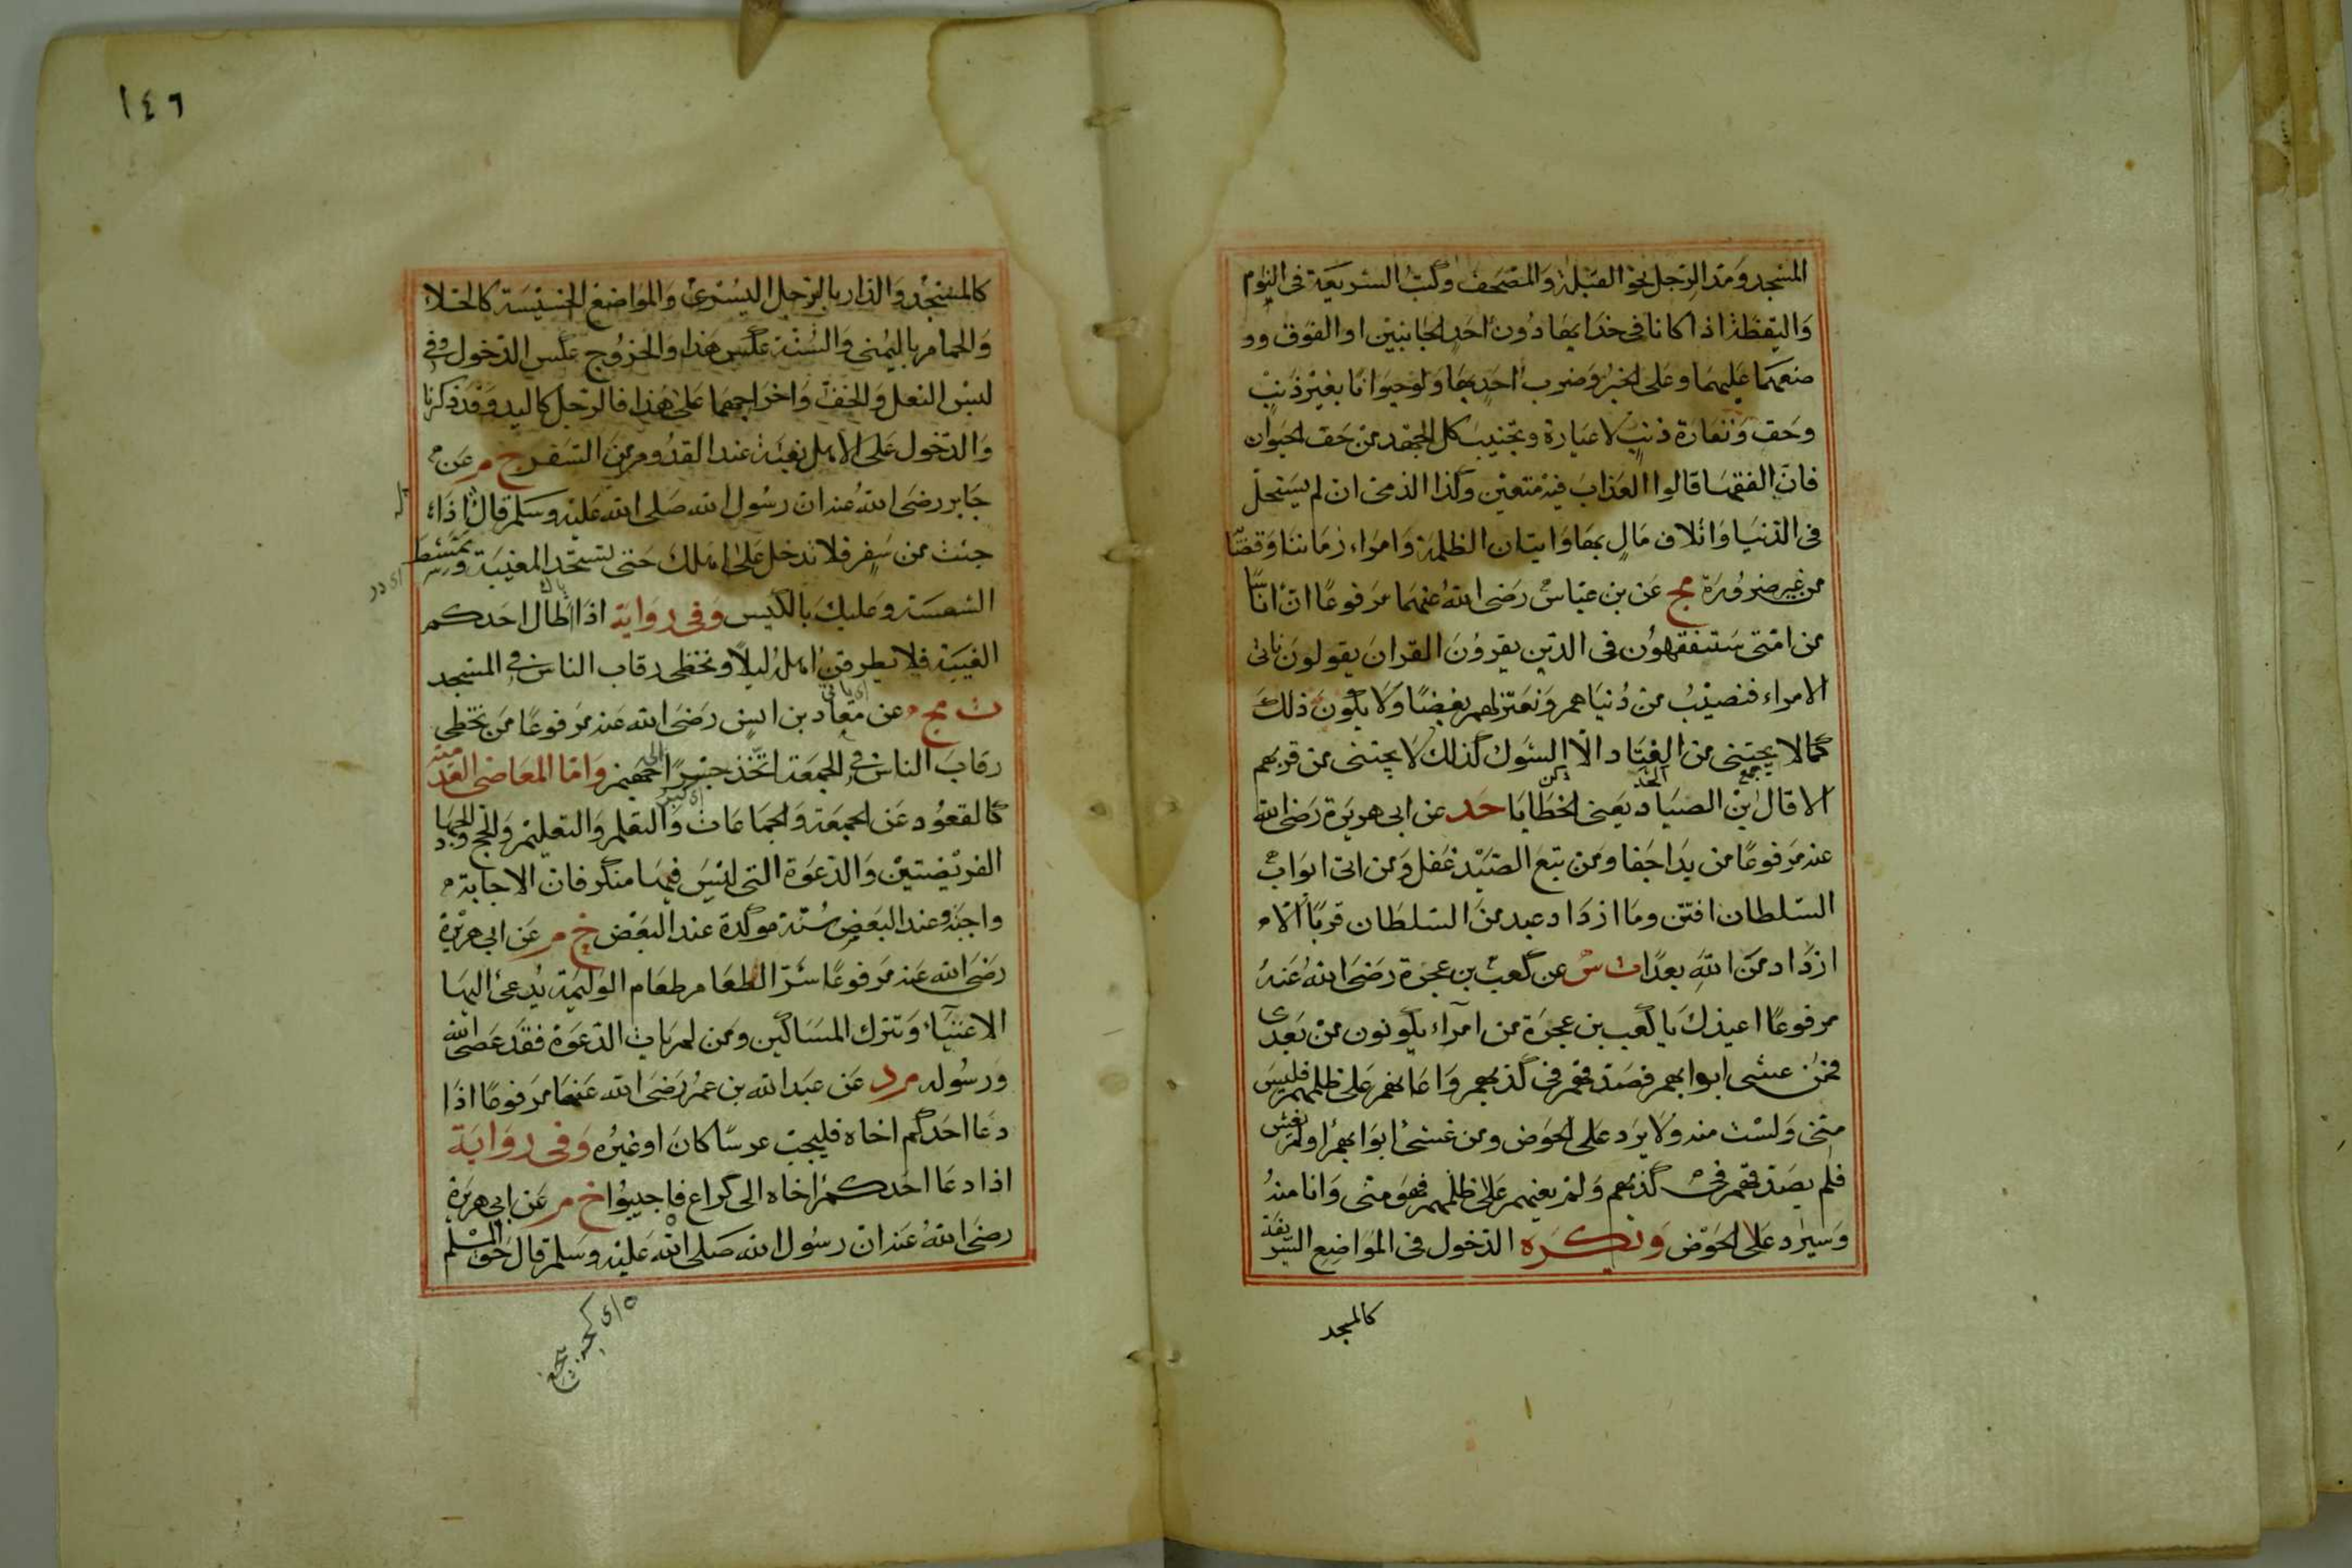 المسجد ومد الرجل نحو القبلة والمصحف وكتب الشريعة فى النوم
واليقظة اذا كانا فى حذايها دون احد الجانبين او الفوق وو
ضعهما عليهما وعلى الخبز وضرب احد بها ولو حيوانا بغير ذنب
وحق ونفارة ذنب لا عيارة ويجتنب كل الجهد من حق الحيوان
فان الفقها قالوا العذاب فيه متعين وكذا الذمى ان لم يستحل
فى الدنيا واتلاف مال بها واتيان الظلمة وامراء زماننا وقضا
من غير ضرورة مج عن بن عباس رضى الله عنهما مرفوعا ان اناسا
من امتى ستتفقهون فى الدين يقرؤن القران يقولون ناتى
الامراء فنصيب من دنياهم ونعتزلهم بغضا ولا يكون ذلك
كما لا يجتنى من القتاد الا الشوك كذلك لا يجتنى من قربهم
الا قال بن الصياد يعنى الخطايا حد عن ابى هريرة رضى الله
عنه مرفوعا من بدا جفا ومن تبع الصيد غفل ومن اتى ابواب
السلطان افتتن وما ازداد عبد من السلطان قربا الا
ازداد من الله بعدا ت س عن كعب بن عجرة رضى الله عنه
مرفوعا اعيذك يا كعب بن عجرة من امراء يكونون من بعدى
فمن غشى ابوابهم فصدقهم فى كذبهم واعانهم على ظلمهم فليس
منى ولست منه ولا يرد على الحوض ومن غشى ابوابهم او لم يغش
فلم يصدقهم فى كذبهم ولم يعنهم على ظلمهم فهو منى وانا منه
وسيرد على الحوض ويكره الدخول فى المواضع الشريفة
كالمسجد
١٤٦
كالمسجد والدار بالرجل اليسرى والمواضع الخسيسة كالخلا
والحمام باليمنى والسنة عكس هذا والخروج عكس الدخول وفى
لبس النعل والخف واخراجهما على هذا فالرجل كاليد وقد ذكرنا
والدخول على الاهل بغتة عند القدوم من السفر خ م عن
جابر رضى الله عنه ان رسول الله صلى الله عليه وسلم قال اذا
جئت من سفر فلا تدخل على اهلك حتى تستحد المغيبة وتمتشط
الشعثة وعليك بالكيس وفى رواية اذا اطال احدكم
الغيبة فلا يطرقن اهله ليلا وتخطى رقاب الناس فى المسجد
ت مج عن معاد بن انس رضى الله عنه مرفوعا من تخطى
رقاب الناس فى الجمعة اتخذ جسرا الى جهنم واما المعاصى العدمية
كالقعود عن الجمعة والجماعات والتعلم والتعليم والحج والجهاد
الفريضتين والدعوة التى ليس فيها منكر فان الاجابة
واجبة وعند البعض سنة موكدة عند البعض خ م عن ابى هريرة
رضى الله عنه مرفوعا شر الطعام طعام الوليمة يدعى اليها
الاغنياء وتترك المساكين ومن لم يات الدعوة فقد عصى الله
ورسوله م د عن عبد الله بن عمر رضى الله عنهما مرفوعا اذا
دعا احدكم اخاه فليجب عرسا كان او غيره وفى رواية
اذا دعا احدكم اخاه الى كراع فاجيبوا خ م عن ابى هريرة
رضى الله عنه ان رسول الله صلى الله عليه وسلم قال حق المسلم